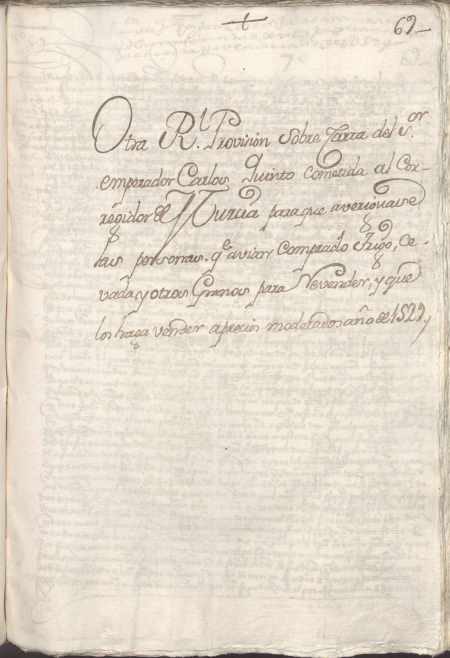 69
Otra Rl. Provisión sobre Carta del Sor
emperador Carlos Quinto Cometida al Cor-
regidor de Murcia para que averiguase
las personas. qe avian Comprado Trigo, Ce-
vada, y otros Granos para Revender, y que
los haga vender a precios moderados año de 1529